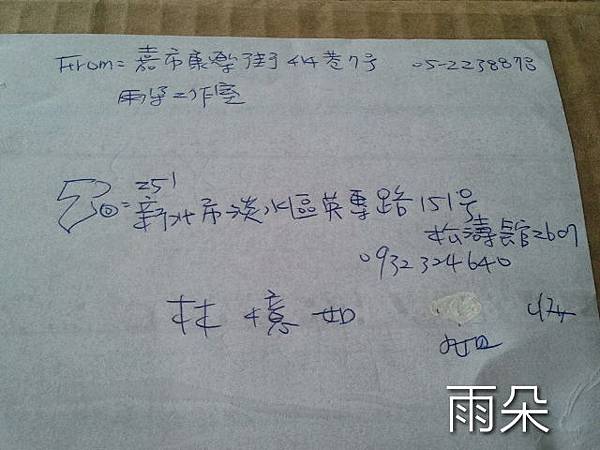 From= 嘉市東學街44巷7号 05-2238873
雨朵工作室
To=251
新北市淡水區英專路151号
松濤館2607
0932324640
林憶如
雨朵